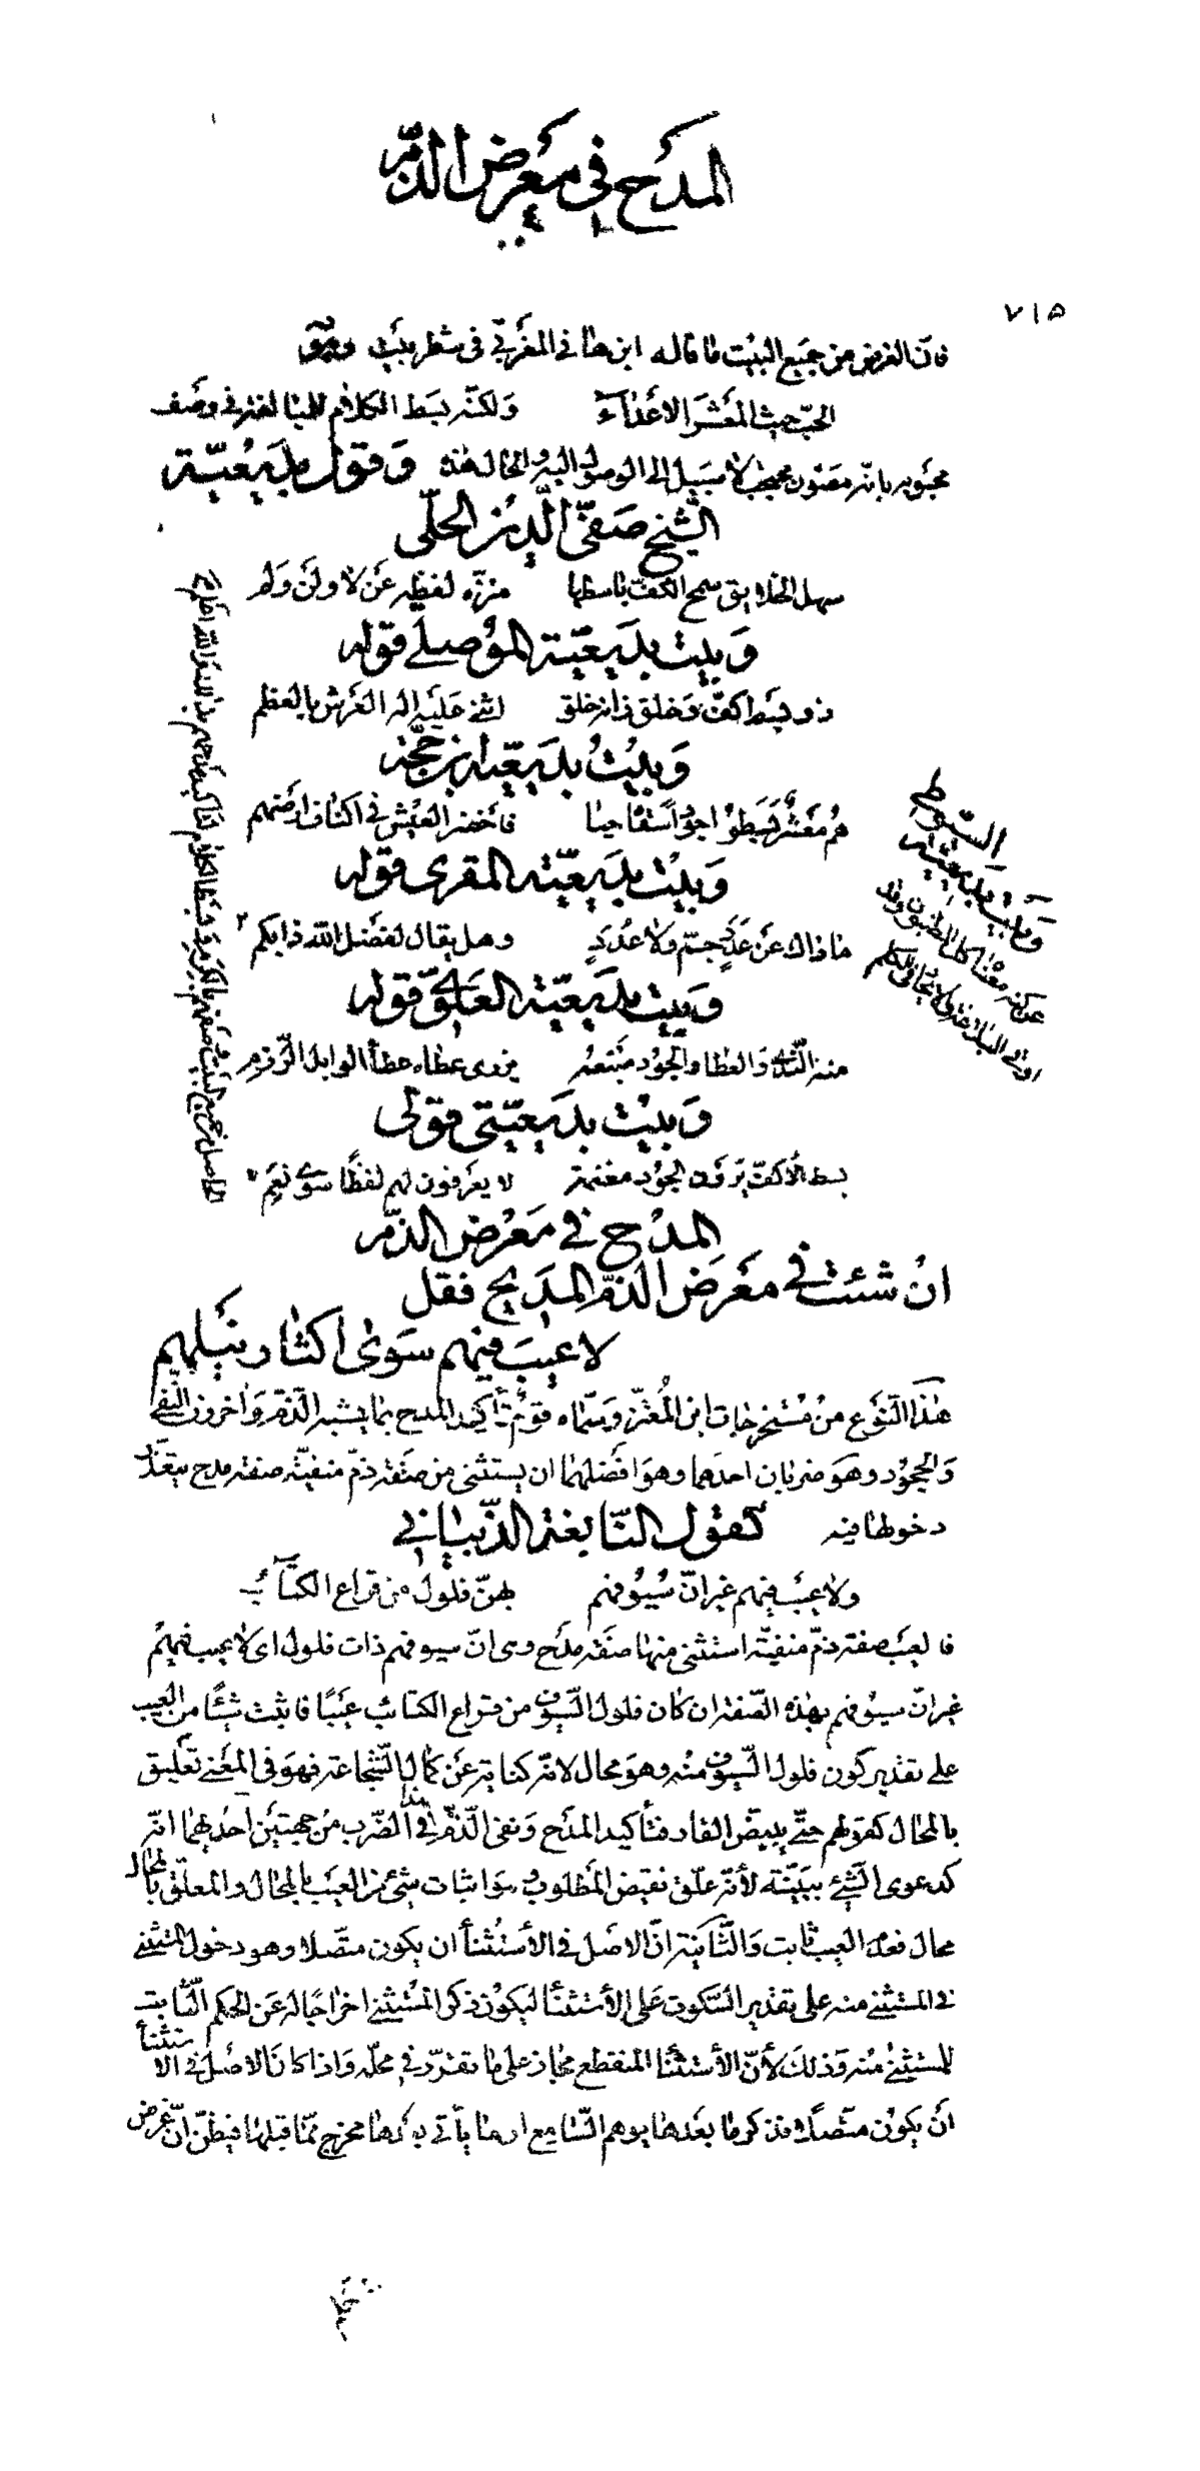 المدح في معرض الذم
٧١٥
فان الغرض من جميع البيت ما قاله ابن هاني المغربي في شطر بيت وهو
الحب حيث المعشر الاعداء ولكنه بسط الكلام للمبالغة في وصف
محبوبه بانه مصون محجب لا سبيل الى الوصول اليه والحال هذه وقول بديعية
الشيخ صفي الدين الحلي
سهل الخلايق سمح الكف باسطها منزه لفظه عن لا ولن ولم
وبيت بديعية الموصلي قوله
ذو بسط كف وخلق زانه خلق اثنى عليه اله العرش بالعظم
وبيت بديعية ابن حجة
هم معشر بسطوا جودا سقاحيا فاخضر العيش في اكناف ارضهم
وبيت بديعية المقري قوله
ماذاك عن عدد جم ولا عدد وهل يقال لفضل الله ذا بكم
وبيت بديعية العلوي قوله
منه الندى والعطا والجود متبعه يزري عطاه عطا الوابل الرزم
وبيت بديعيتي قولي
بسط الاكف يرون الجود مغنمة لا يعرفون لهم لفظا سوى نعم
السيوطي
وبيت بديعيته
المدح في معرض الذم
ان شئت في معرض الذم المديح فقل
لا عيب فيهم سوى اكثار نيلهم
هذا النوع من مستخرجات ابن المعتز وسماه قوم تأكيد المدح بما يشبه الذم واخرون النفي
والجحود وهو ضربان احدهما وهو افضلهما ان يستثنى من صفة ذم منفية صفة مدح بتقدير
دخولها فيه كقول النابغة الذبياني
ولا عيب فيهم غير ان سيوفهم بهن فلول من قراع الكتائب
فالعيب صفة ذم منفية استثنى منها صفة مدح وهي ان سيوفهم ذات فلول اي لا عيب فيهم
غير ان سيوفهم بهذه الصفة ان كان فلول السيوف من قراع الكتائب عيبا فاثبت شيئا من العيب
على تقدير كون فلول السيوف منه وهو محال لانه كناية عن كمال الشجاعة فهو في المعنى تعليق
بالمحال كقولهم حتى يبيض القار فتأكيد المدح ونفي الذم في هذا الضرب من جهتين احديهما انه
كدعوى الشيء ببينة لأنه علق نقيض المطلوب وهو اثبات شيء من العيب بالمحال والمعلق بالمحال
محال فعدم العيب ثابت والثانية ان الاصل في الأستثنأ ان يكون متصلا وهو دخول المستثنى
في المستثنى منه على تقدير السكوت على الأستثنأ ليكون ذكر المستثنى اخراجا له عن الحكم الثابت
للمستثنى منه وذلك لأن الأستثنأ المنقطع مجاز على ما تقرر في محله واذا كان الاصل في الاستثنأ
ان يكون متصلا فذكر ما بعدها يوهم السامع ان ما يأتي بعدها مخرج مما قبلها فيظن ان غرض